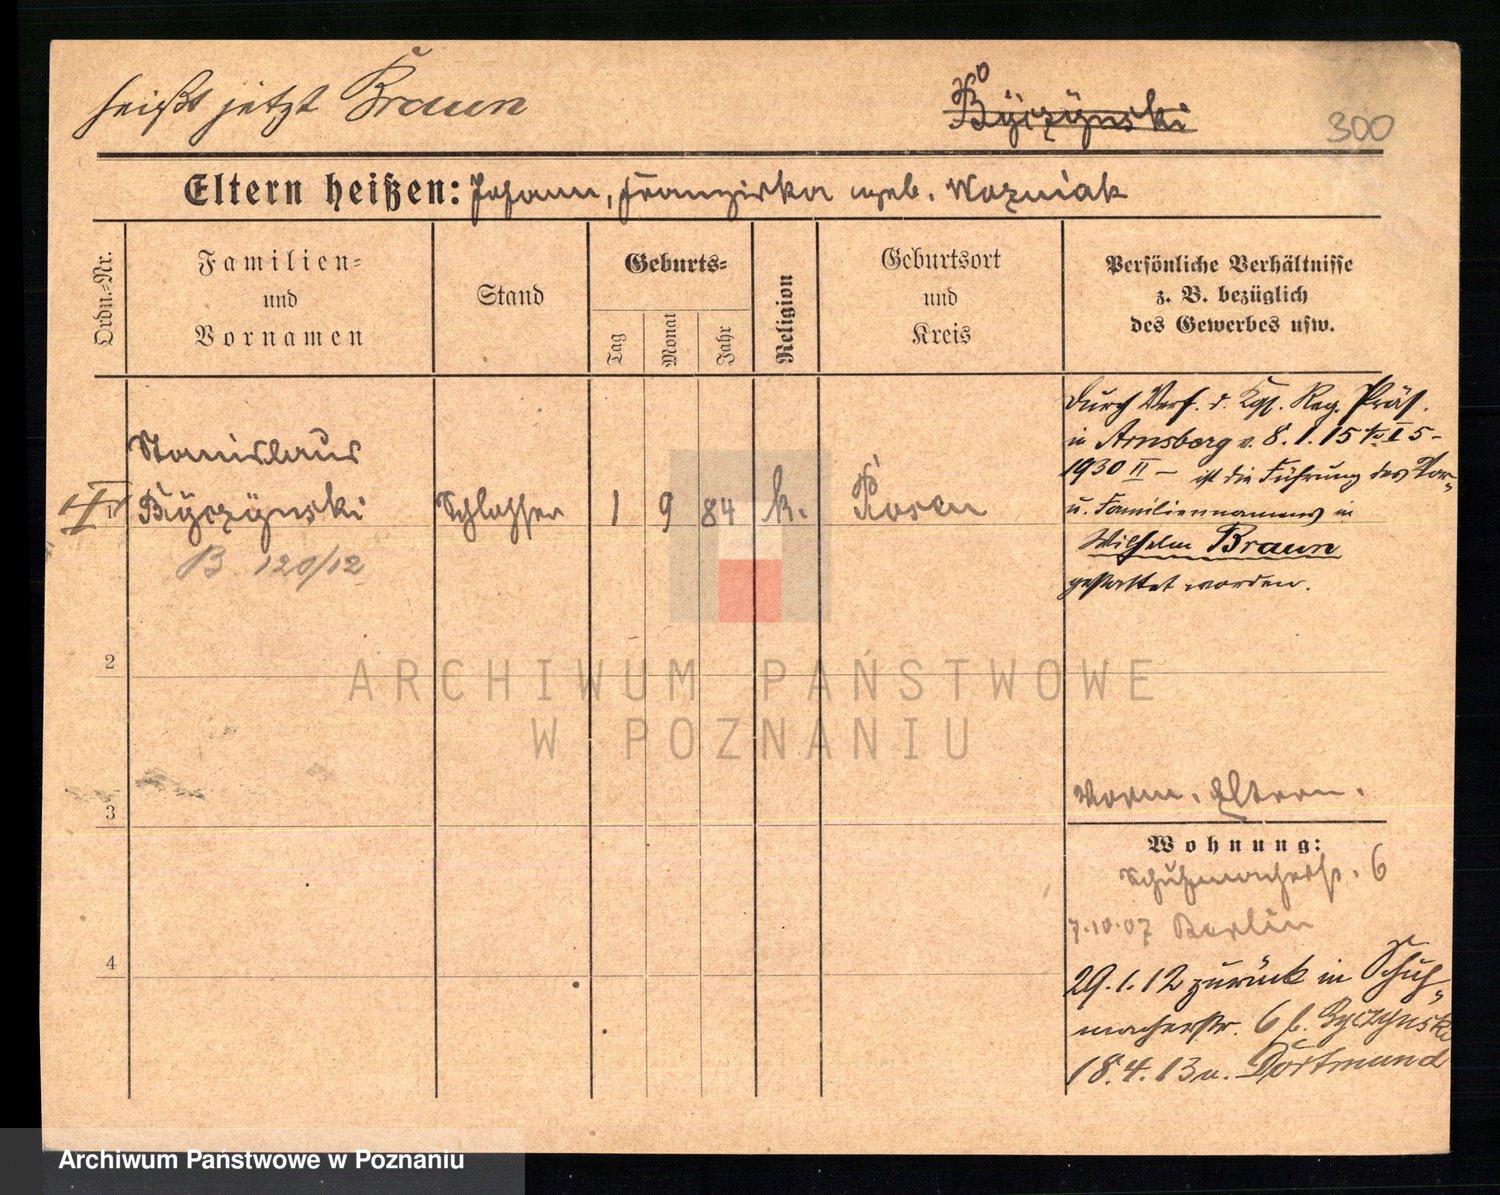 heißt jetzt Braun
Byczynski
300
Eltern heißen: Johann, Franziska geb. Wozniak
Ordn.-Nr.
Familien-
und
Vornamen
Stand
Geburts-
Tag
Monat
Jahr
Religion
Geburtsort
und
Kreis
Persönliche Verhältnisse
z. B. bezüglich
des Gewerbes usw.
1
Stanislaus
Byczynski
B 120/12
Schlosser
1
9
84
k.
Posen
Durch Verf. d. Kgl. Reg. Präs.
in Arnsberg v. 8.1.15 I 5-
1930 II - ist die Führung des Vor-
u. Familiennamens in
Wilhelm Braun
gestattet worden.
2
3
4
Vorm. Eltern.
Wohnung:
Schuhmacherstr. 6
7.10.07 Berlin
29.1.12 zurück in Schuh-
macherstr. 6 b. Byczynski
18.4.13 n. Dortmund
ARCHIWUM PAŃSTWOWE
W POZNANIU
Archiwum Państwowe w Poznaniu